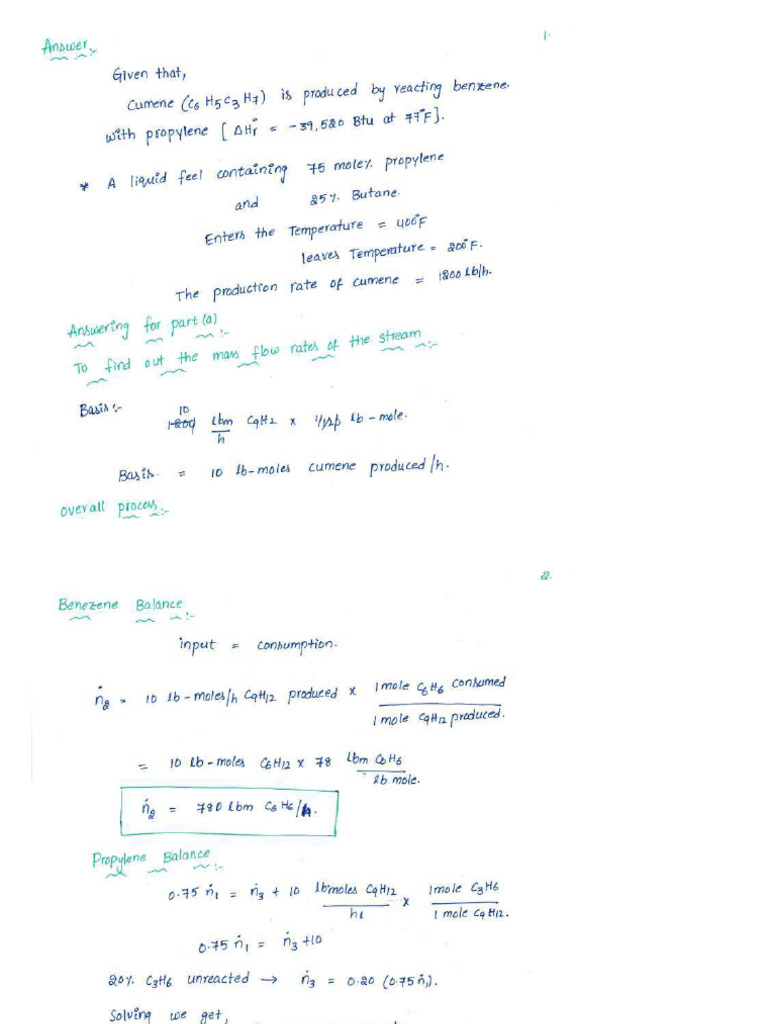 1.
Answer:-
Given that,
Cumene (C6 H5 C3 H7) is produced by reacting benzene.
with propylene [ ΔHr° = -39,520 Btu at 77°F].
* A liquid feel containing 75 mole% propylene
and 25% Butane.
Enters the Temperature = 400°F
leaves Temperature = 200°F.
The production rate of cumene = 1200 lb/h.
Answering for part (a) :-
To find out the mass flow rates of the stream :-
Basis:-
10
1200 lbm/h C9H2 x 1/120 lb-mole.
Basis = 10 lb-moles cumene produced/h.
overall process:-
2.
Benezene Balance :-
input = consumption.
ṅ2 = 10 lb-moles/h C9H12 produced x 1 mole C6H6 consumed / 1 mole C9H12 produced.
= 10 lb-moles C6H12 x 78 lbm C6H6 / lb mole.
ṅ2 = 780 lbm C6H6/h.
Propylene Balance :-
0.75 ṅ1 = ṅ3 + 10 lb moles C9H12 / h x 1 mole C3H6 / 1 mole C9H12.
0.75 ṅ1 = ṅ3 +10
20% C3H6 unreacted → ṅ3 = 0.20 (0.75 ṅ1).
Solving we get,